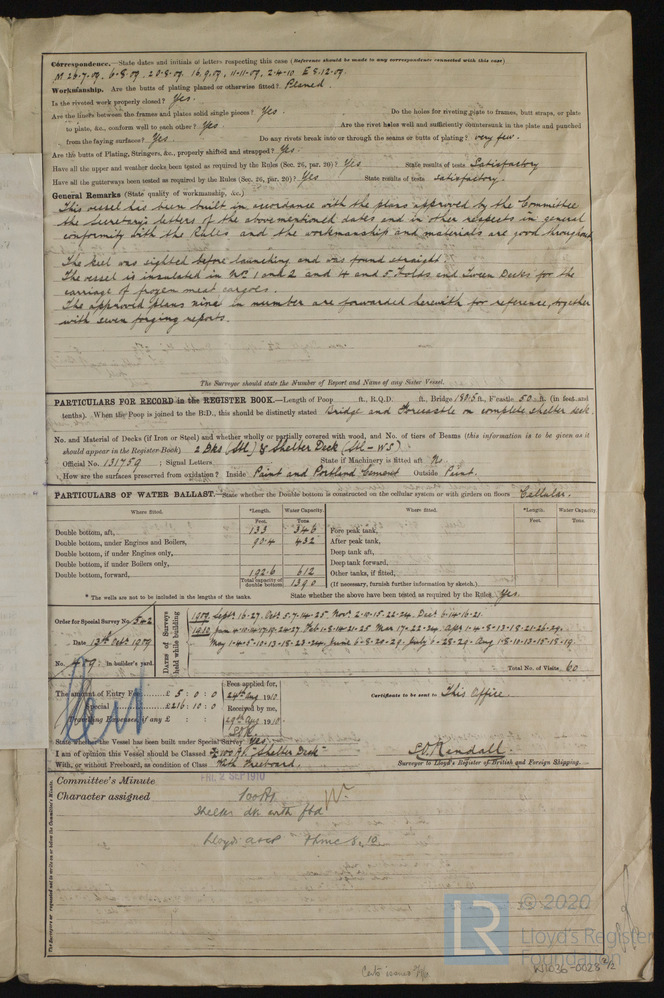 Correspondence.—State dates and initials of letters respecting this case (Reference should be made to any correspondence connected with this case).
M 26.7.09, 6.8.09, 20.8.09, 16.9.09, 11.11.09, 2.4.10 E 8.12.09.
Workmanship. Are the butts of plating planed or otherwise fitted? Planed.
Is the riveted work properly closed? Yes.
Are the liners between the frames and plates solid single pieces? Yes. Do the holes for riveting plate to frames, butt straps, or plate
to plate, &c., conform well to each other? Yes Are the rivet holes well and sufficiently countersunk in the plate and punched
from the faying surfaces? Yes Do any rivets break into or through the seams or butts of plating? very few.
Are the butts of Plating, Stringers, &c., properly shifted and strapped? Yes.
Have all the upper and weather decks been tested as required by the Rules (Sec. 26, par. 20)? Yes State results of tests Satisfactory
Have all the gutterways been tested as required by the Rules (Sec. 26, par. 20)? Yes State results of tests satisfactory.
General Remarks (State quality of workmanship, &c.)
This vessel has been built in accordance with the plans approved by the Committee
the Secretary's letters of the abovementioned dates and in other respects in general
conformity with the Rules and the workmanship and materials are good throughout
The keel was sighted before launching and was found straight.
The vessel is insulated in Nos. 1 and 2 and 4 and 5 holds and Tween Decks for the
carriage of frozen meat cargoes.
The approved plans nine in number are forwarded herewith for reference, together
with seven forging reports.
The Surveyor should state the Number of Report and Name of any Sister Vessel.
PARTICULARS FOR RECORD in the REGISTER BOOK.—Length of Poop ft., R.Q.D. ft., Bridge 180.5 ft., F'castle 50 ft. (in feet and
tenths). When the Poop is joined to the B.D., this should be distinctly stated Bridge and Forecastle on complete shelter deck.
No. and Material of Decks (if Iron or Steel) and whether wholly or partially covered with wood, and No. of tiers of Beams (this information is to be given as it
should appear in the Register Book) 2 Dks (Stl) & Shelter Deck (Stl-WS)
Official No. 131759 ; Signed Letters State if Machinery is fitted aft No.
How are the surfaces preserved from oxidation? Inside Paint and Portland Cement Outside Paint.
PARTICULARS OF WATER BALLAST.—State whether the Double bottom is constructed on the cellular system or with girders on floors Cellular.
Where fitted. *Length. Water Capacity. Where fitted. *Length. Water Capacity.
Feet. Tons. Feet. Tons.
Double bottom, aft, 133 346 Fore peak tank,
Double bottom, under Engines and Boilers, 90.4 432 After peak tank,
Double bottom, if under Engines only, Deep tank aft,
Double bottom, if under Boilers only, Deep tank forward,
Double bottom, forward, 192.6 612 Other tanks, if fitted,
Total capacity of double bottom 1390 (If necessary, furnish further information by sketch.)
* The wells are not to be included in the lengths of the tanks. State whether the above have been tested as required by the Rules Yes.
Order for Special Survey No. 542
Date 13th Octr 1909
No. 409 in builder's yard.
DATES of Surveys held while building
1909 Sept. 16.27. Oct. 5.7.14.25. Nov. 2.10.15.22.24. Dec. 6.14.16.21.
1910 Jan 4.10.14.17.19.24.27 Feb 1.8.14.21.25 Mar 17.22.24 Apr. 1.4.8.13.18.21.26.29.
May 1.4.5.10.13.18.23.24 June 6.8.20.29. July 6.28.29. Aug 1.8.10.13.15.18.19.
Total No. of Visits 60
The amount of Entry Fee £ 5 : 0 : 0
Special £ 216 : 10 : 0
Travelling Expenses, if any £ : :
Fees applied for,
24th Aug 1910
Received by me,
29th Aug 1910
Certificate to be sent to This Office
State whether the Vessel has been built under Special Survey Yes.
I am of opinion this Vessel should be Classed 100A1 "Shelter Deck"
With, or without Freeboard, as condition of Class With Freeboard.
Surveyor to Lloyd's Register of British and Foreign Shipping.
FRI. 2 SEP 1910
Committee's Minute
Character assigned 100A1
Shelter dk with fbd
Lloyds A&CP + LMC 8.10
The Surveyors are requested not to write on or below the Committee's Minute.
© 2020
Lloyd's Register
Foundation
W1036-0028 2/2